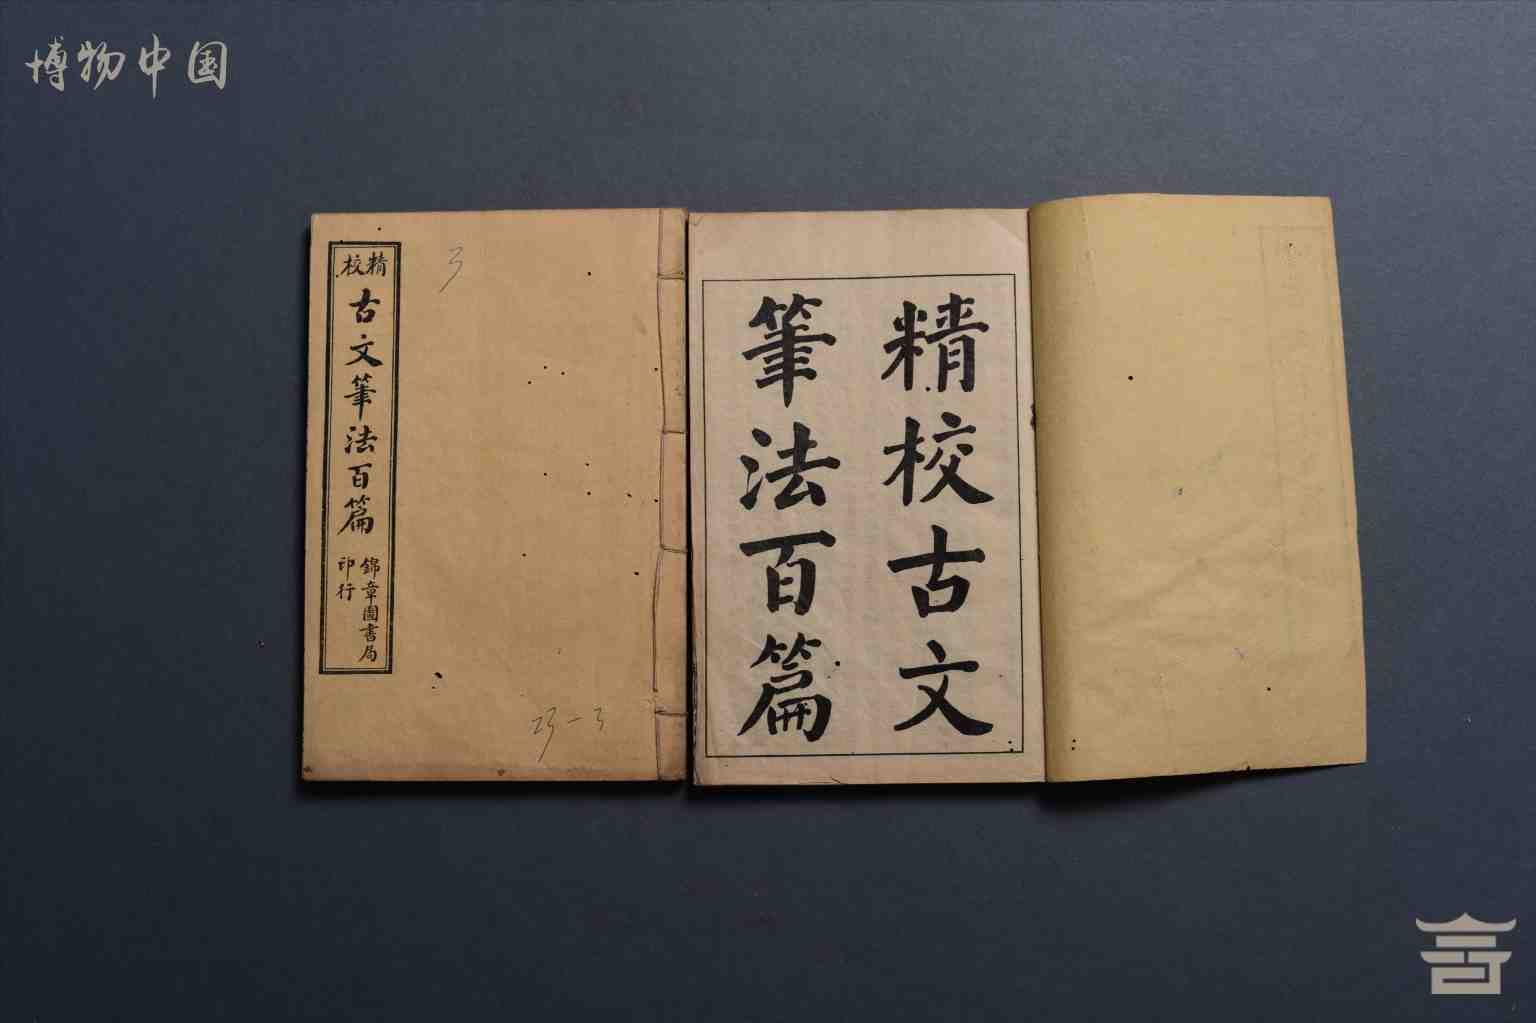 博物中国
精校
古文筆法百篇
錦章圖書局
印行
3
23-3
精校古文
筆法百篇